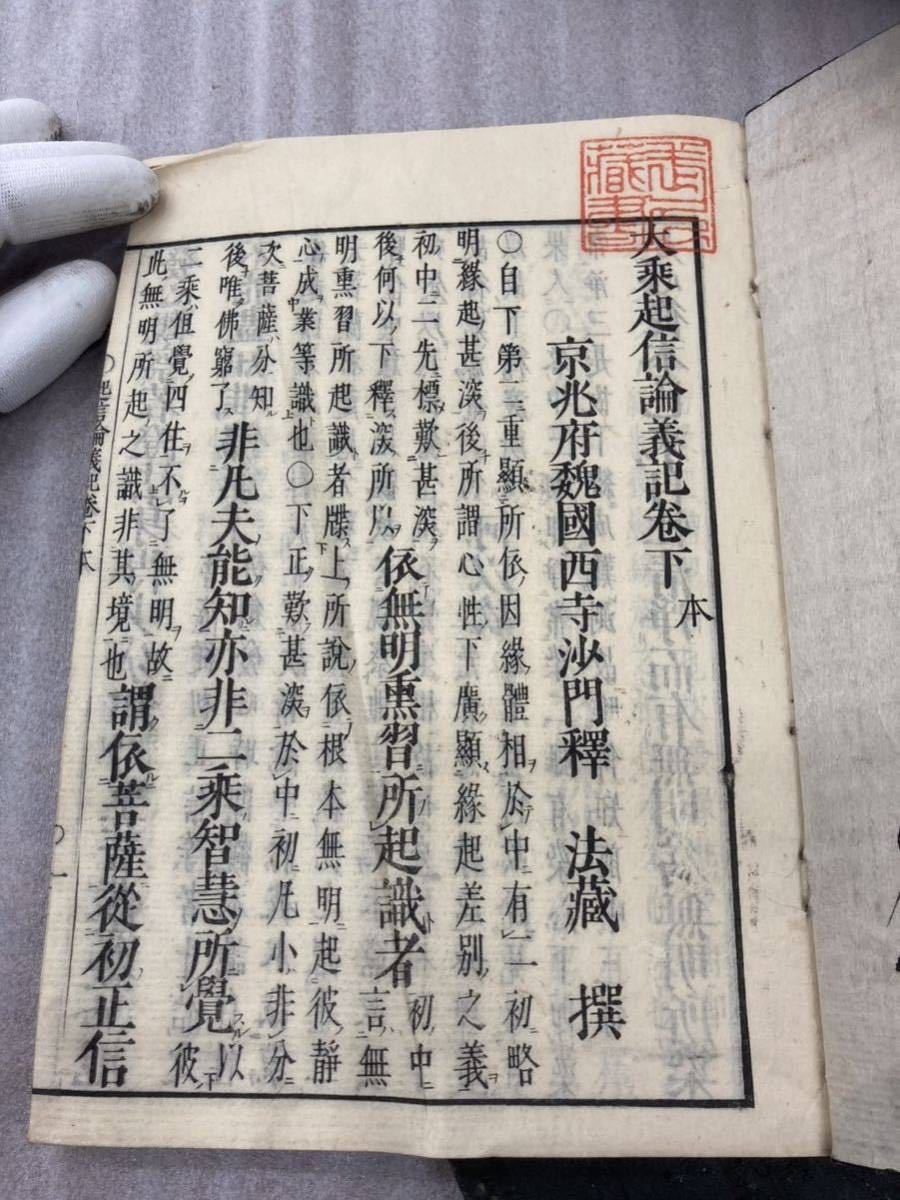 藏書
大乘起信論義記卷下 本
京兆府魏國西寺沙門釋 法藏 撰
〇自下第二重顯所依因緣體相於中有二初略
明緣起甚深後所謂心性下廣顯緣起差別之義
初中二先標歎甚深
後何以下釋深所以
依無明熏習所起識者
初中
言無
明熏習所起識者牒上所說依根本無明起彼靜
心成業等識也〇下正歎甚深於中初凡小非分
次菩薩分知
後唯佛窮了
非凡夫能知亦非二乘智慧所覺
以
彼
二乘但覺四住不了無明故
此無明所起之識非其境也
謂依菩薩從初正信
〇起信論義記卷下本
〇一